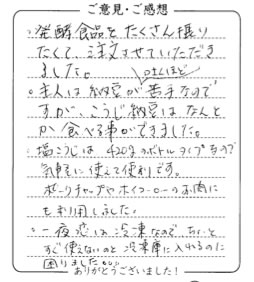 ご意見・ご感想
・発酵食品をたくさん摂り
たくて、注文させていただき
ました。
・主人は納豆が苦手なので
すが、こうじ納豆はなんと
か食べる事ができました。
・塩こうじは420gのボトルタイプなので
気軽に使えて便利です。
ポークチャップやホイコーローのお肉に
も利用しました。
・一夜恋は冷凍なので、ちょっと
すぐ使えないのと冷凍庫に入れるのに
困りました。。。
ありがとうございました！